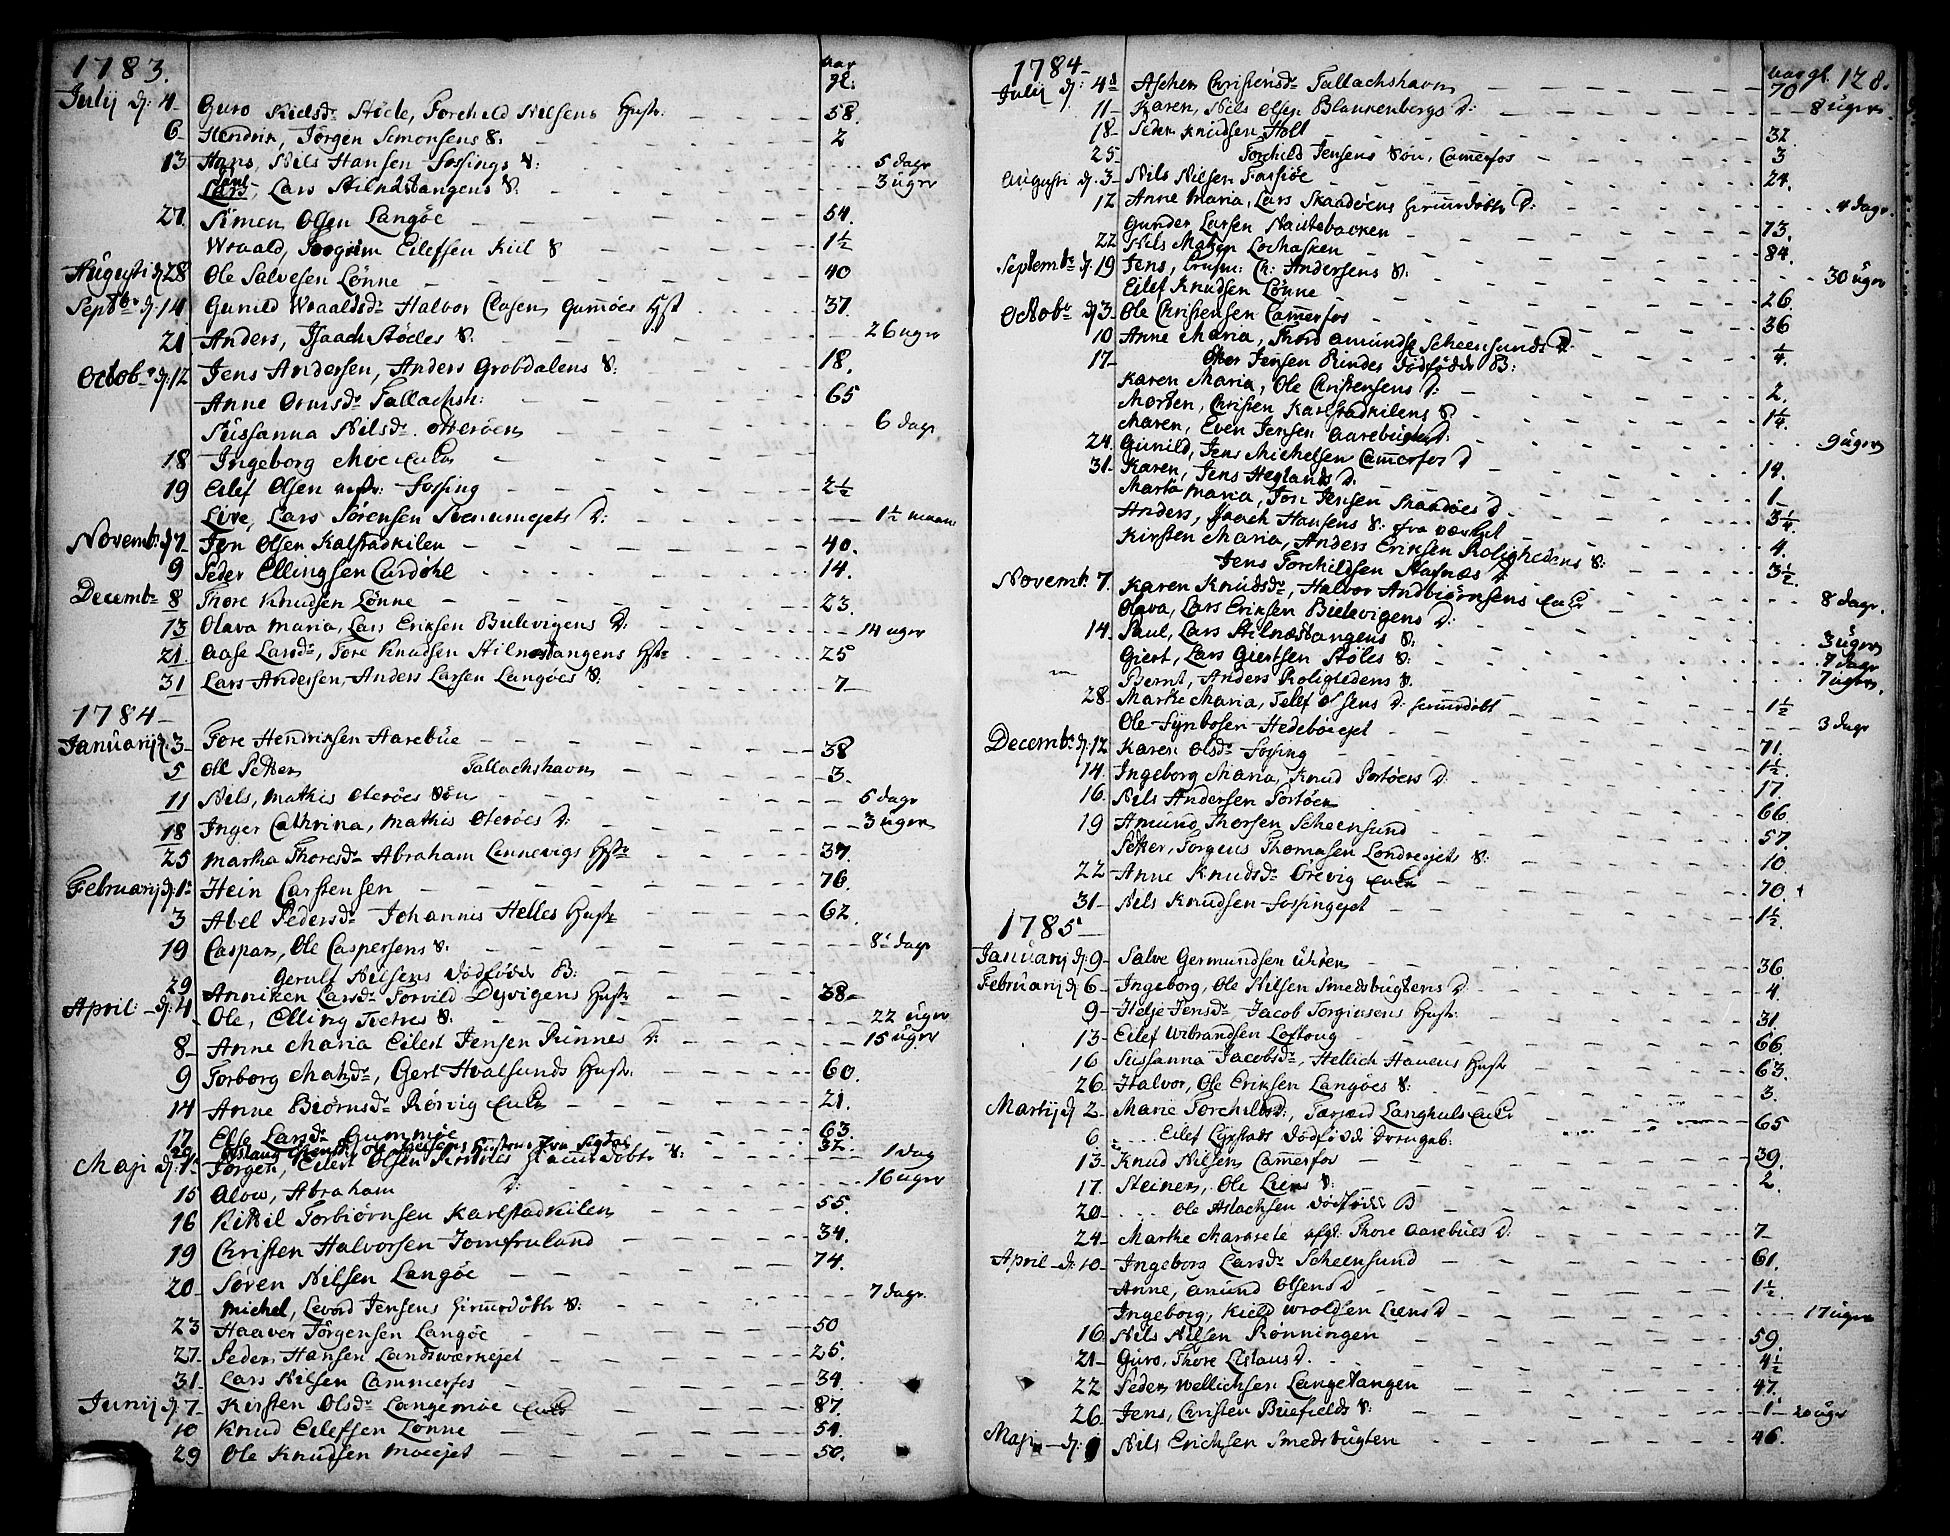 1783. aar gl:
Julij d: 4 Guro Kieldsdr Støele, Torchild Nilsens Hustr: 58.
6 Hendrik, Jörgen Simonsens S: 2
13 Hans, Nils Hansen Fossings S: 5 dage
Lars, Lars Stilnestangens S. 3 uger
27. Simen Olsen Langöe 54.
Wraald, Torgrim Eilefsen Kiil S 1½
Augusti d 28 Ole Salvesen Lönne 40
Septbr d. 14 Gunild Wraaldsdr Halvor Clasens Gumöes Hst 37
21 Anders, Isaach Stöeles S. 26 uger
Octobr d. 12 Jens Andersen, Anders Grobdalens S: 18.
Anne Ormsdr Tallachsh: 65
Sussanna Nilsdr Otteröens 6 dage
18 Ingeborg Moe Enke
19 Eilef Olsen Fossing 2½
Live, Lars Sörensen Stenumejets D: 1½ maan
Novemb: d 7 Jon Olsen Kalstadkilen 40.
9 Peder Ellingsen Eardahl 14.
Decembr 8 Thore Knudsen Lönne 23.
13 Olava Maria, Lars Eriksen Buevigens D: 14 uger
21. Aase Larsdr, Tore Knudsen Stilnestangens Hstr 25
31 Lars Andersen, Anders Larsen Langöes S. 7
1784
Januarij d. 3 Tore Hendriksen Aarebue 38
5 Ole Petter Tallachshavn 3.
11 Nils, Mathis Oteröes Sön 5 dage
18 Inger Cathrina, Mathis Oteröes D. 3 uger
25 Martha Thoresdr Abraham Linnevigs Hstr 37.
Februarij d. 1 Hein Carstensen 76.
3 Abel Pedersdr Johannis Helles Hustr 62.
19 Caspar, Ole Caspersens S. 8 dage
29 Gerult Nilsens Dödfödde B:
April d: 4 Anniken Larsdr Torvild Dyvigens Hustr 38
Ole, Elling Tvetens S. 22 uger
8 Anne Maria Eilert Jensen Rinnes D: 15 uger
9 Torborg Madsdr, Gert Hvalsunds Hustr. 60.
14 Anne Biörnsdr Rörvig Enke 21.
17 Else Larsdr Gummöe 63.
32.
Maji d. 1 Jörgen, Eilert Olsen S: 1 dag
15 Alow, Abraham D: 16 uger
16 Kittil Torbiörnsen Karlstadkilen 55.
19 Christen Halvorsen Jomfruland 34.
20 Sören Nilsen Langöe 74.
Michel, Levord Jensens hiemedöbte S: 7 dage
23 Haaver Jörgensen Langöe 50
27 Peder Hansen Landsværkejet 25.
31 Lars Nilsen Cammerfos 34.
Junij d. 7 Kirsten Olsdr Langemöe Enke 87
10 Knud Eilefsen Lönne 54.
29 Ole Knudsen Moeejet 50.
1784 aar gl. 128.
Julij d: 4 Aschen Christensdr Tallachshavn 70
11 Karen, Nils Olsen Blankenbergs D: 8 uger
18 Peder Knudsen Holt 32.
25 Torchild Jensens Sön, Camerfos 3
Augusti d. 3 Nils Nilsen Farsiöe 24.
12 Anne Maria, Lars Skaadöens hiemedöbte D: 4 dage
Gunder Larsen Nautebacken 73.
22 Nils Madsen Lochasken 84.
Septembr d. 19 Jens, Ch: Andersens S: 30 uger
Eilef Knudsen Lönne 26
Octobr d 3 Ole Christensen Camerfos 36
10 Anne Maria, Thord Amunds Scheensunds D. ¼
17 Jensen Rindes Dödfödde B:
Karen Maria, Ole Christensens D: 2.
Morten, Christen Karlstadkilens S 1¼
Maren, Even Jensen Aarebugten D: 9 uger
24. Gunild, Jens Michelsen Camerfos D 14.
31. Karen, Jens Heglands D: 1
Marta Maria, Jon Jensen Skaadöes D 3¼
Anders, Isaach Hansens S: fra værket 4.
Kirsten Maria, Anders Eriksen Rolighedens S: 3½
Jens Torchildsen Stafnæs D
Novemb. 7. Karen Knudsdr, Halvor Andbiörnsens Enke
Olava, Lars Eriksen Buevigens D: 8 dage.
14. Paul, Lars Stilnæstangens S: 3 uger
Giert, Lars Giertsen Stöles S: 7 dage
Bernt, Anders Rolighedens S: 7 uger
28 Marthe Maria, Tellef Olsens D: hiemedöbt 1½
Ole Synbosen Hedeböeejet 3 dage
Decembr d. 12 Karen Olsdr Fossing 71.
14 Ingeborg Maria, Knud Portöens D: 1½.
16. Nils Andersen Portöen 17.
19 Amund Thorsen Scheensund 66.
Petter, Torgius Thomasen Londreejets S: 57.
22 Anne Knudsdr Örevig Enke 10
31 Nils Knudsen Fossingejet 70.
1785 1½.
Januarij d. 9 Salve Germundsen Uhren 36.
Februarij d 6 Ingeborg, Ole Nilsen Smedsbugtens D. 4.
9 Helje Jensdr Jacob Torgiusens Hustr. 31.
13 Eilef Wibrandsen Loftoug 66.
16 Sussanna Jacobsdr, Hellich Hauens Hustr 63.
26. Halvor, Ole Eriksen Langöes S: 3.
Martij d 2 Marie Torchildsd:, Tarjord Langhuls Enke 65
6 Eilef Lyrstads Dödfödde Drengeb:
13 Knud Nilsen Camerfos 39.
17. Steiner, Ole Liens S. 2.
20 Ole Aslachsen Dödfödde B
24 Marthe Margrete afgl. Thore Aarebues D: 7
April d: 10 Ingeborg Larsdr Scheensund 61.
Anne, Amund Olsens D 1½.
Ingeborg, Kield Wroldsen Liens D 17 uger
16 Nils Nilsen Rönningen 59.
21 Guro, Thore Listaus D. 4½
22 Peder Wellichsen Langetangen 47.
26. Jens, Christen Buefields S: 1 20 uger
Maji d. 1 Nils Erichsen Smedsbugten 46.